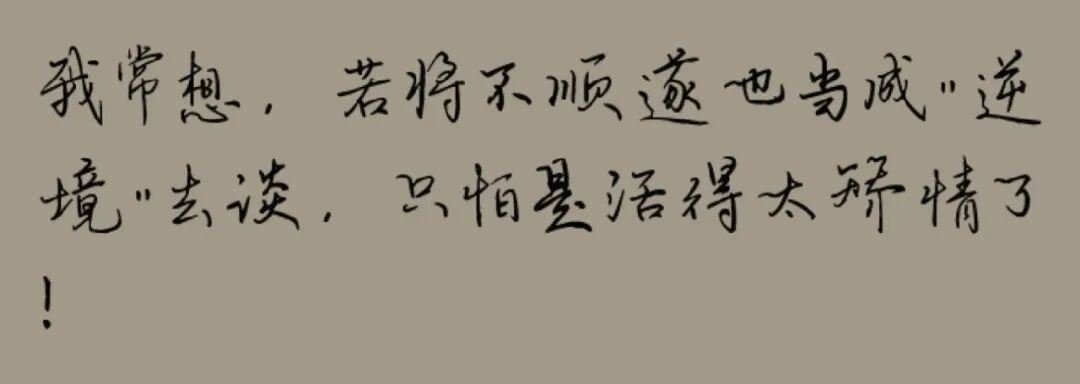 我常想，若将不顺遂也当成"逆
境"去谈，只怕是活得太矫情了
！